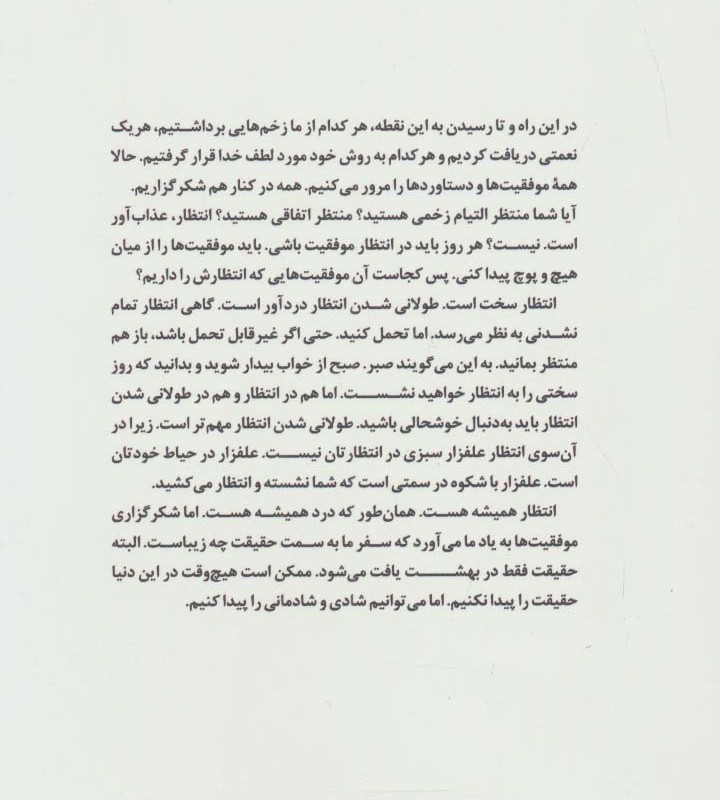 در این راه و تا رسیدن به این نقطه، هر کدام از ما زخم‌هایی برداشتیم، هریک
نعمتی دریافت کردیم و هرکدام به روش خود مورد لطف خدا قرار گرفتیم. حالا
همهٔ موفقیت‌ها و دستاوردها را مرور می‌کنیم. همه در کنار هم شکرگزاریم.
آیا شما منتظر التیام زخمی هستید؟ منتظر اتفاقی هستید؟ انتظار، عذاب‌آور
است. نیست؟ هر روز باید در انتظار موفقیت باشی. باید موفقیت‌ها را از میان
هیچ و پوچ پیدا کنی. پس کجاست آن موفقیت‌هایی که انتظارش را داریم؟
انتظار سخت است. طولانی شدن انتظار دردآور است. گاهی انتظار تمام
نشدنی به نظر می‌رسد. اما تحمل کنید. حتی اگر غیرقابل تحمل باشد، باز هم
منتظر بمانید. به این می‌گویند صبر. صبح از خواب بیدار شوید و بدانید که روز
سختی را به انتظار خواهید نشست. اما هم در انتظار و هم در طولانی شدن
انتظار باید به‌دنبال خوشحالی باشید. طولانی شدن انتظار مهم‌تر است. زیرا در
آن‌سوی انتظار علفزار سبزی در انتظارتان نیست. علفزار در حیاط خودتان
است. علفزار با شکوه در سمتی است که شما نشسته و انتظار می‌کشید.
انتظار همیشه هست. همان‌طور که درد همیشه هست. اما شکرگزاری
موفقیت‌ها به یاد ما می‌آورد که سفر ما به سمت حقیقت چه زیباست. البته
حقیقت فقط در بهشت یافت می‌شود. ممکن است هیچ‌وقت در این دنیا
حقیقت را پیدا نکنیم. اما می‌توانیم شادی و شادمانی را پیدا کنیم.